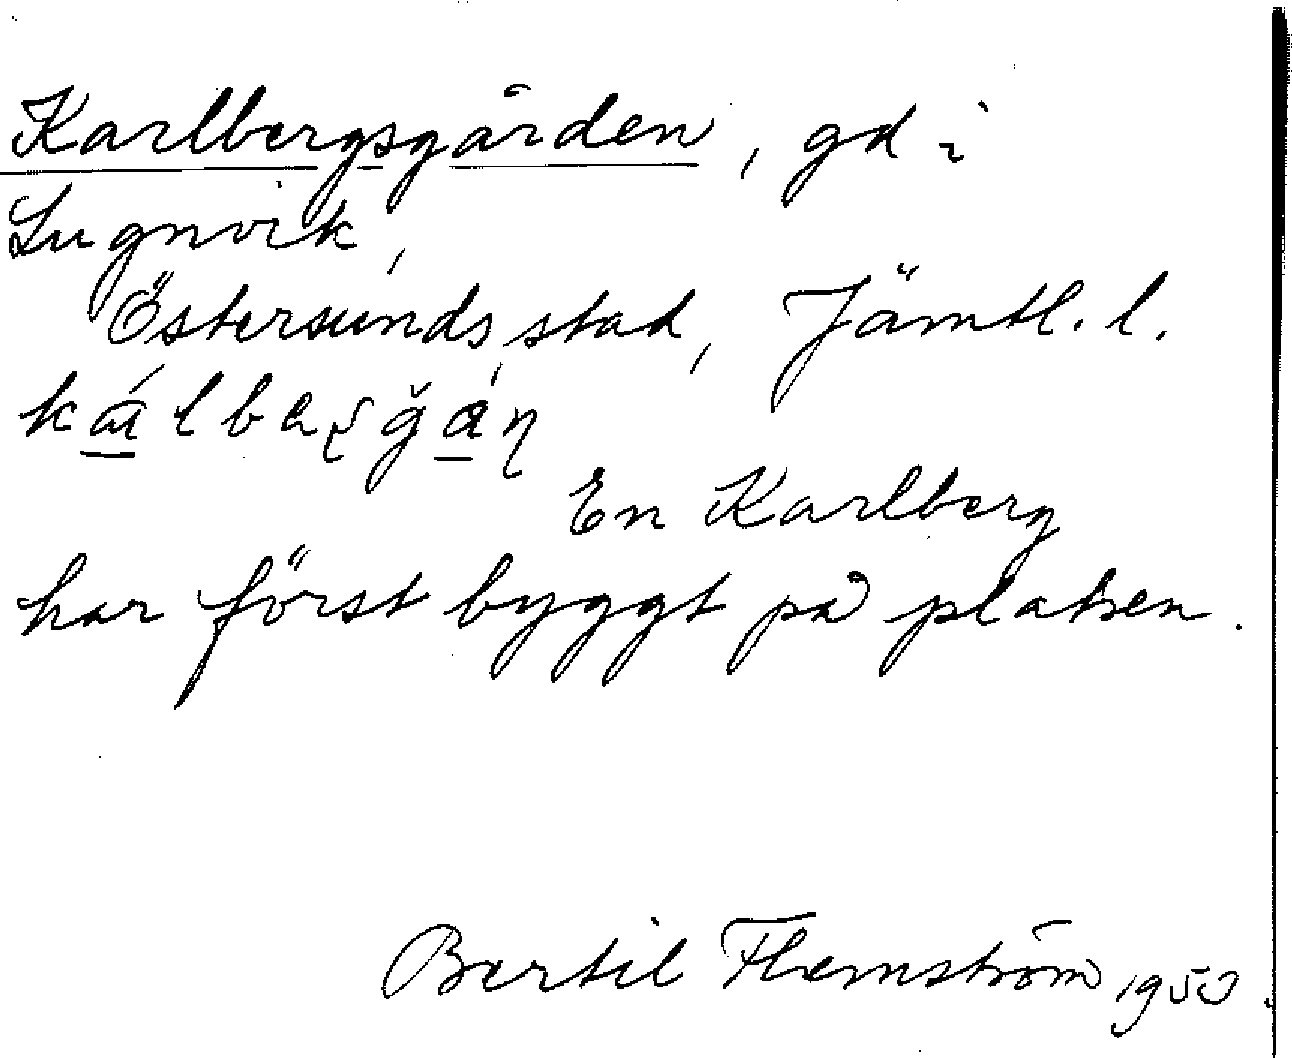 Karlbergsgården, gd i
Lugnvik,
Östersunds stad, Jämtl. l.
En Karlberg
har först byggt på platsen.
Bertil Flemström 1950.